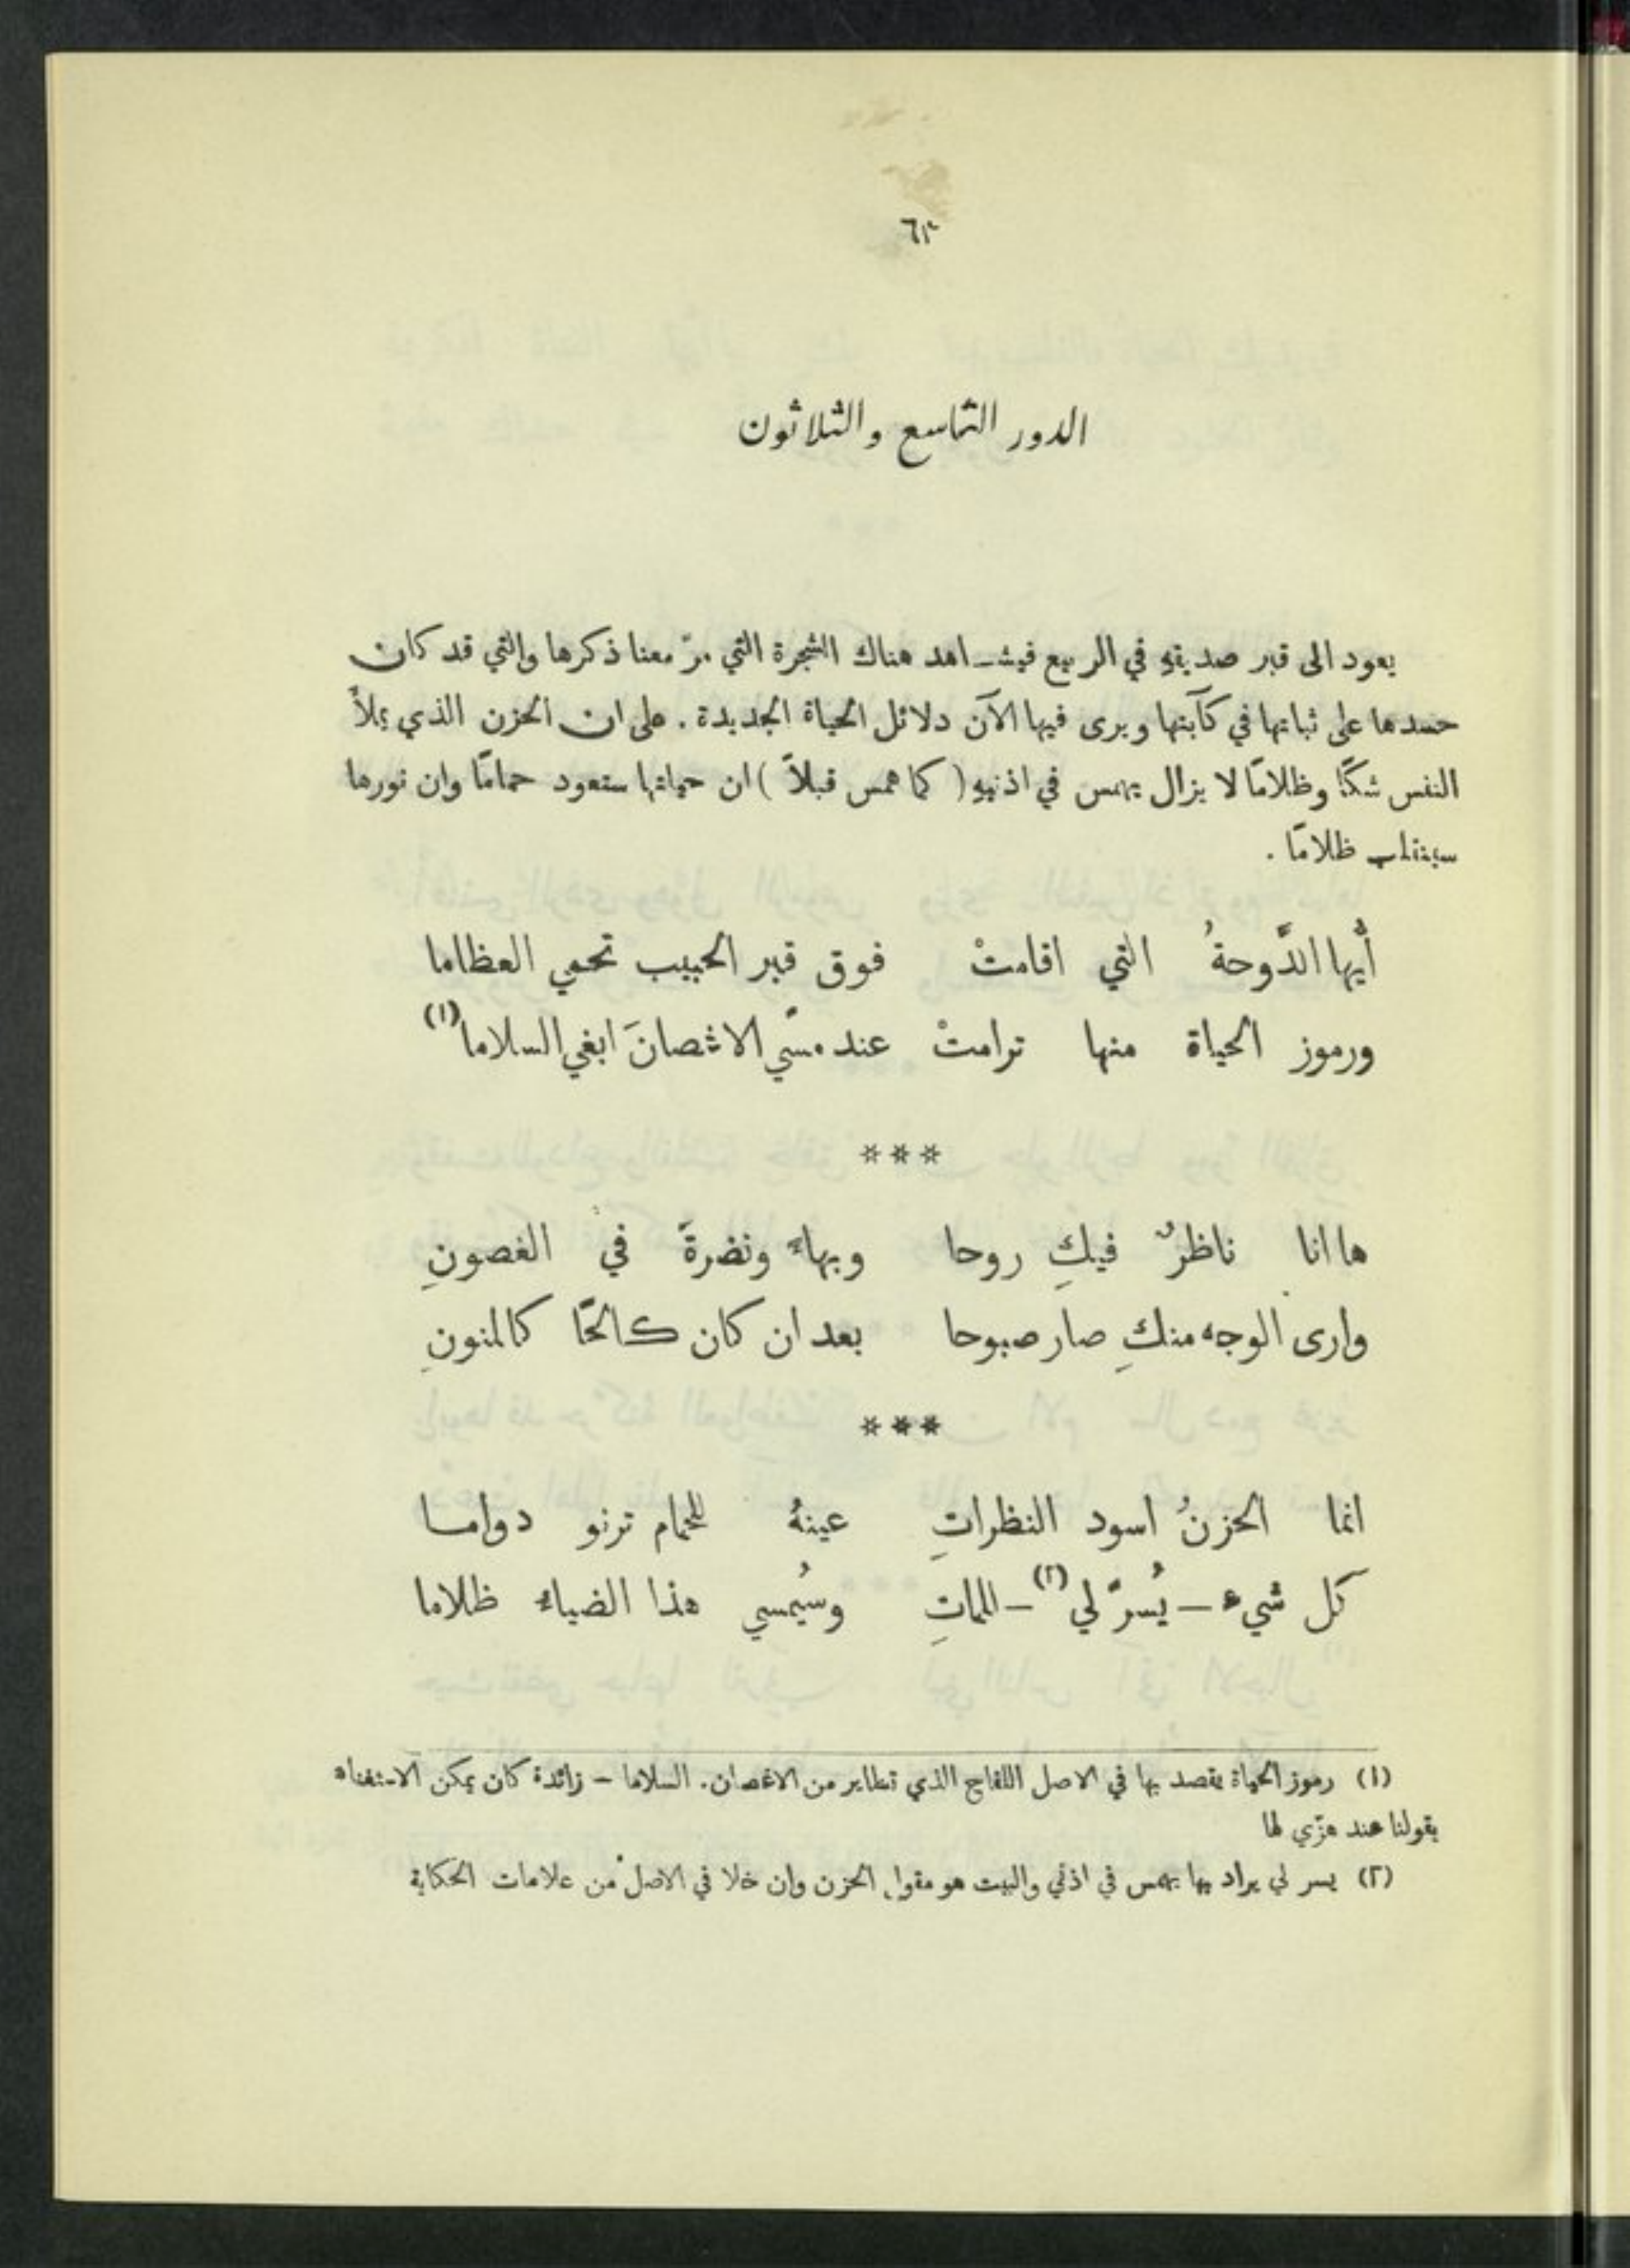 ٦٣
الدور التاسع والثلاثون
يعود الى قبر صديقهِ في الربيع فيشـاهد هناك الشجرة التي مرّ معنا ذكرها والتي قد كان
حسدها على ثباتها في كآبتها ويرى فيها الآن دلائل الحياة الجديدة . على ان الحزن الذي يملأ
النفس شكًّا وظلامًا لا يزال يهمس في اذنيهِ ( كما همس قبلاً ) ان حياتها ستعود حمامًا وان نورها
سينقلب ظلامًا .
أيُّها الدَّوحةُ التي اقامتْ فوق قبر الحبيب تحمي العظاما
ورموز الحياة منها ترامتْ عند مسّي الاغصانَ ابغي السلاما (١)
***
ها انا ناظرٌ فيكِ روحا وبهاءً ونضرةً في الغصونِ
وارى الوجه منكِ صار صبوحا بعد ان كان كالحًا كالمنونِ
***
انما الحزنُ اسود النظراتِ عينهُ للحمام ترنو دواما
كل شيء — يُسرّ لي (٢) — للماتِ وسيُمسي هذا الضياء ظلاما
(١) رموز الحياة يقصد بها في الاصل اللقاح الذي تطاير من الاغصان. السلاما — زائدة كان يمكن الاستغناء
بقولنا عند هزّي لها
(٢) يسر لي يراد بها يهمس في اذني والبيت هو مقول الحزن وان خلا في الاصل من علامات الحكاية